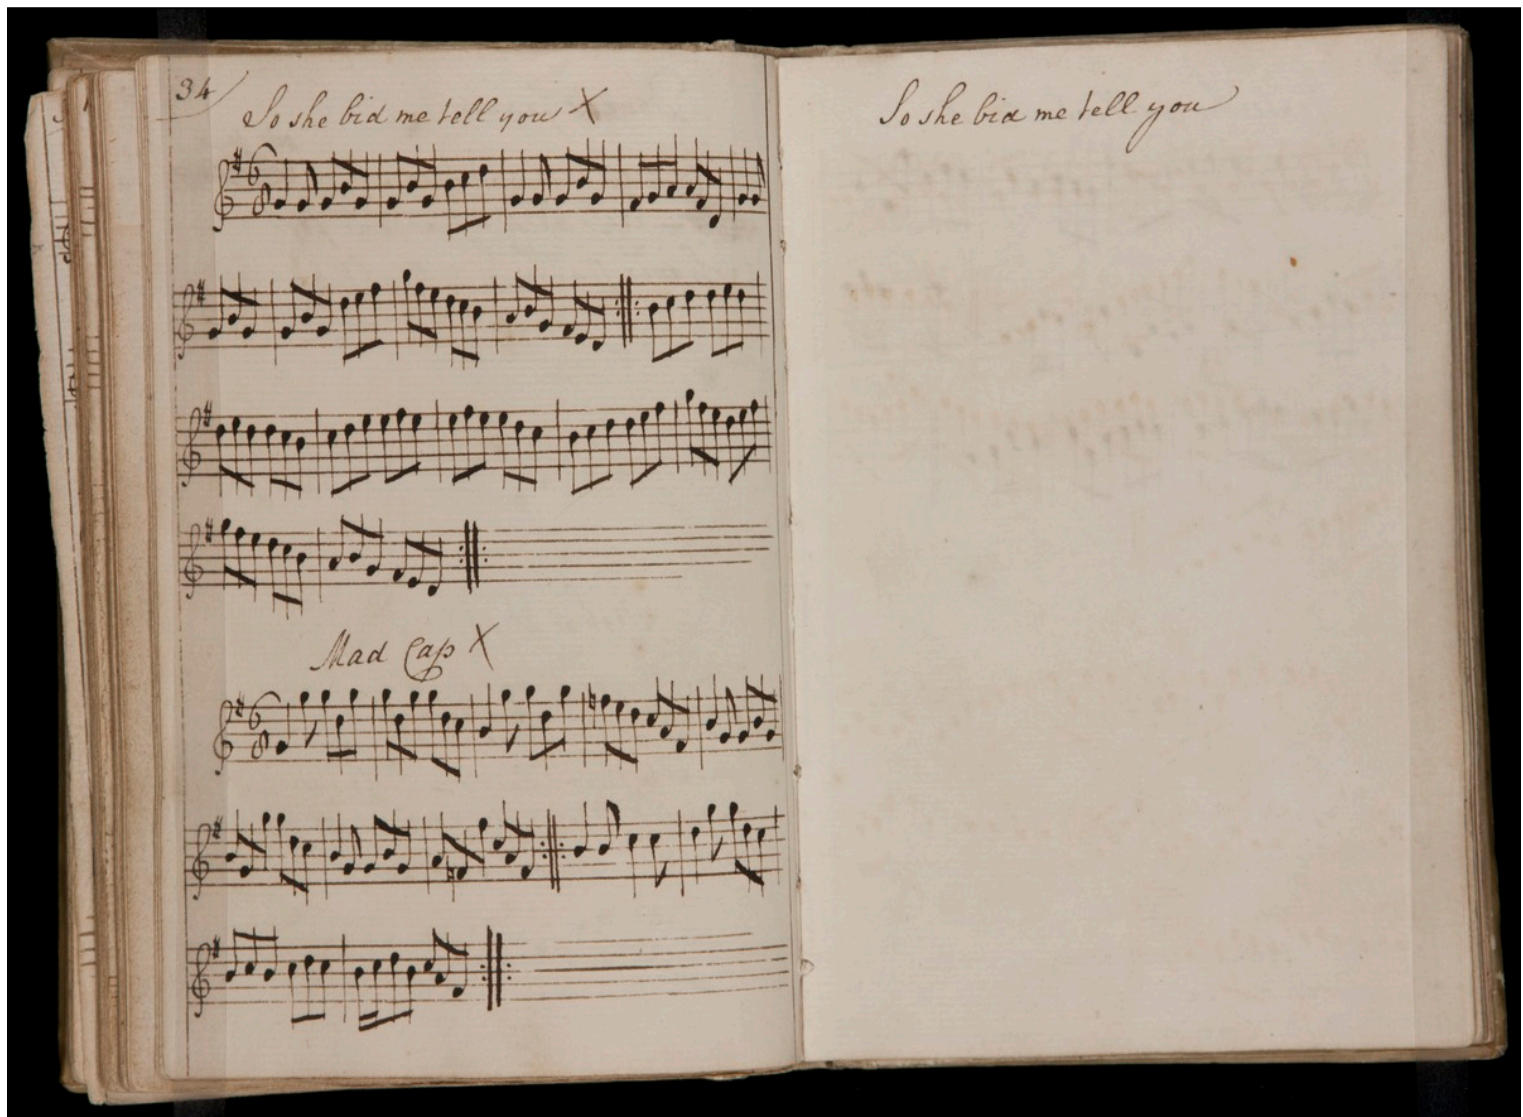 34
So she bid me tell you X
6
8
Mad Cap X
6
8
So she bid me tell you